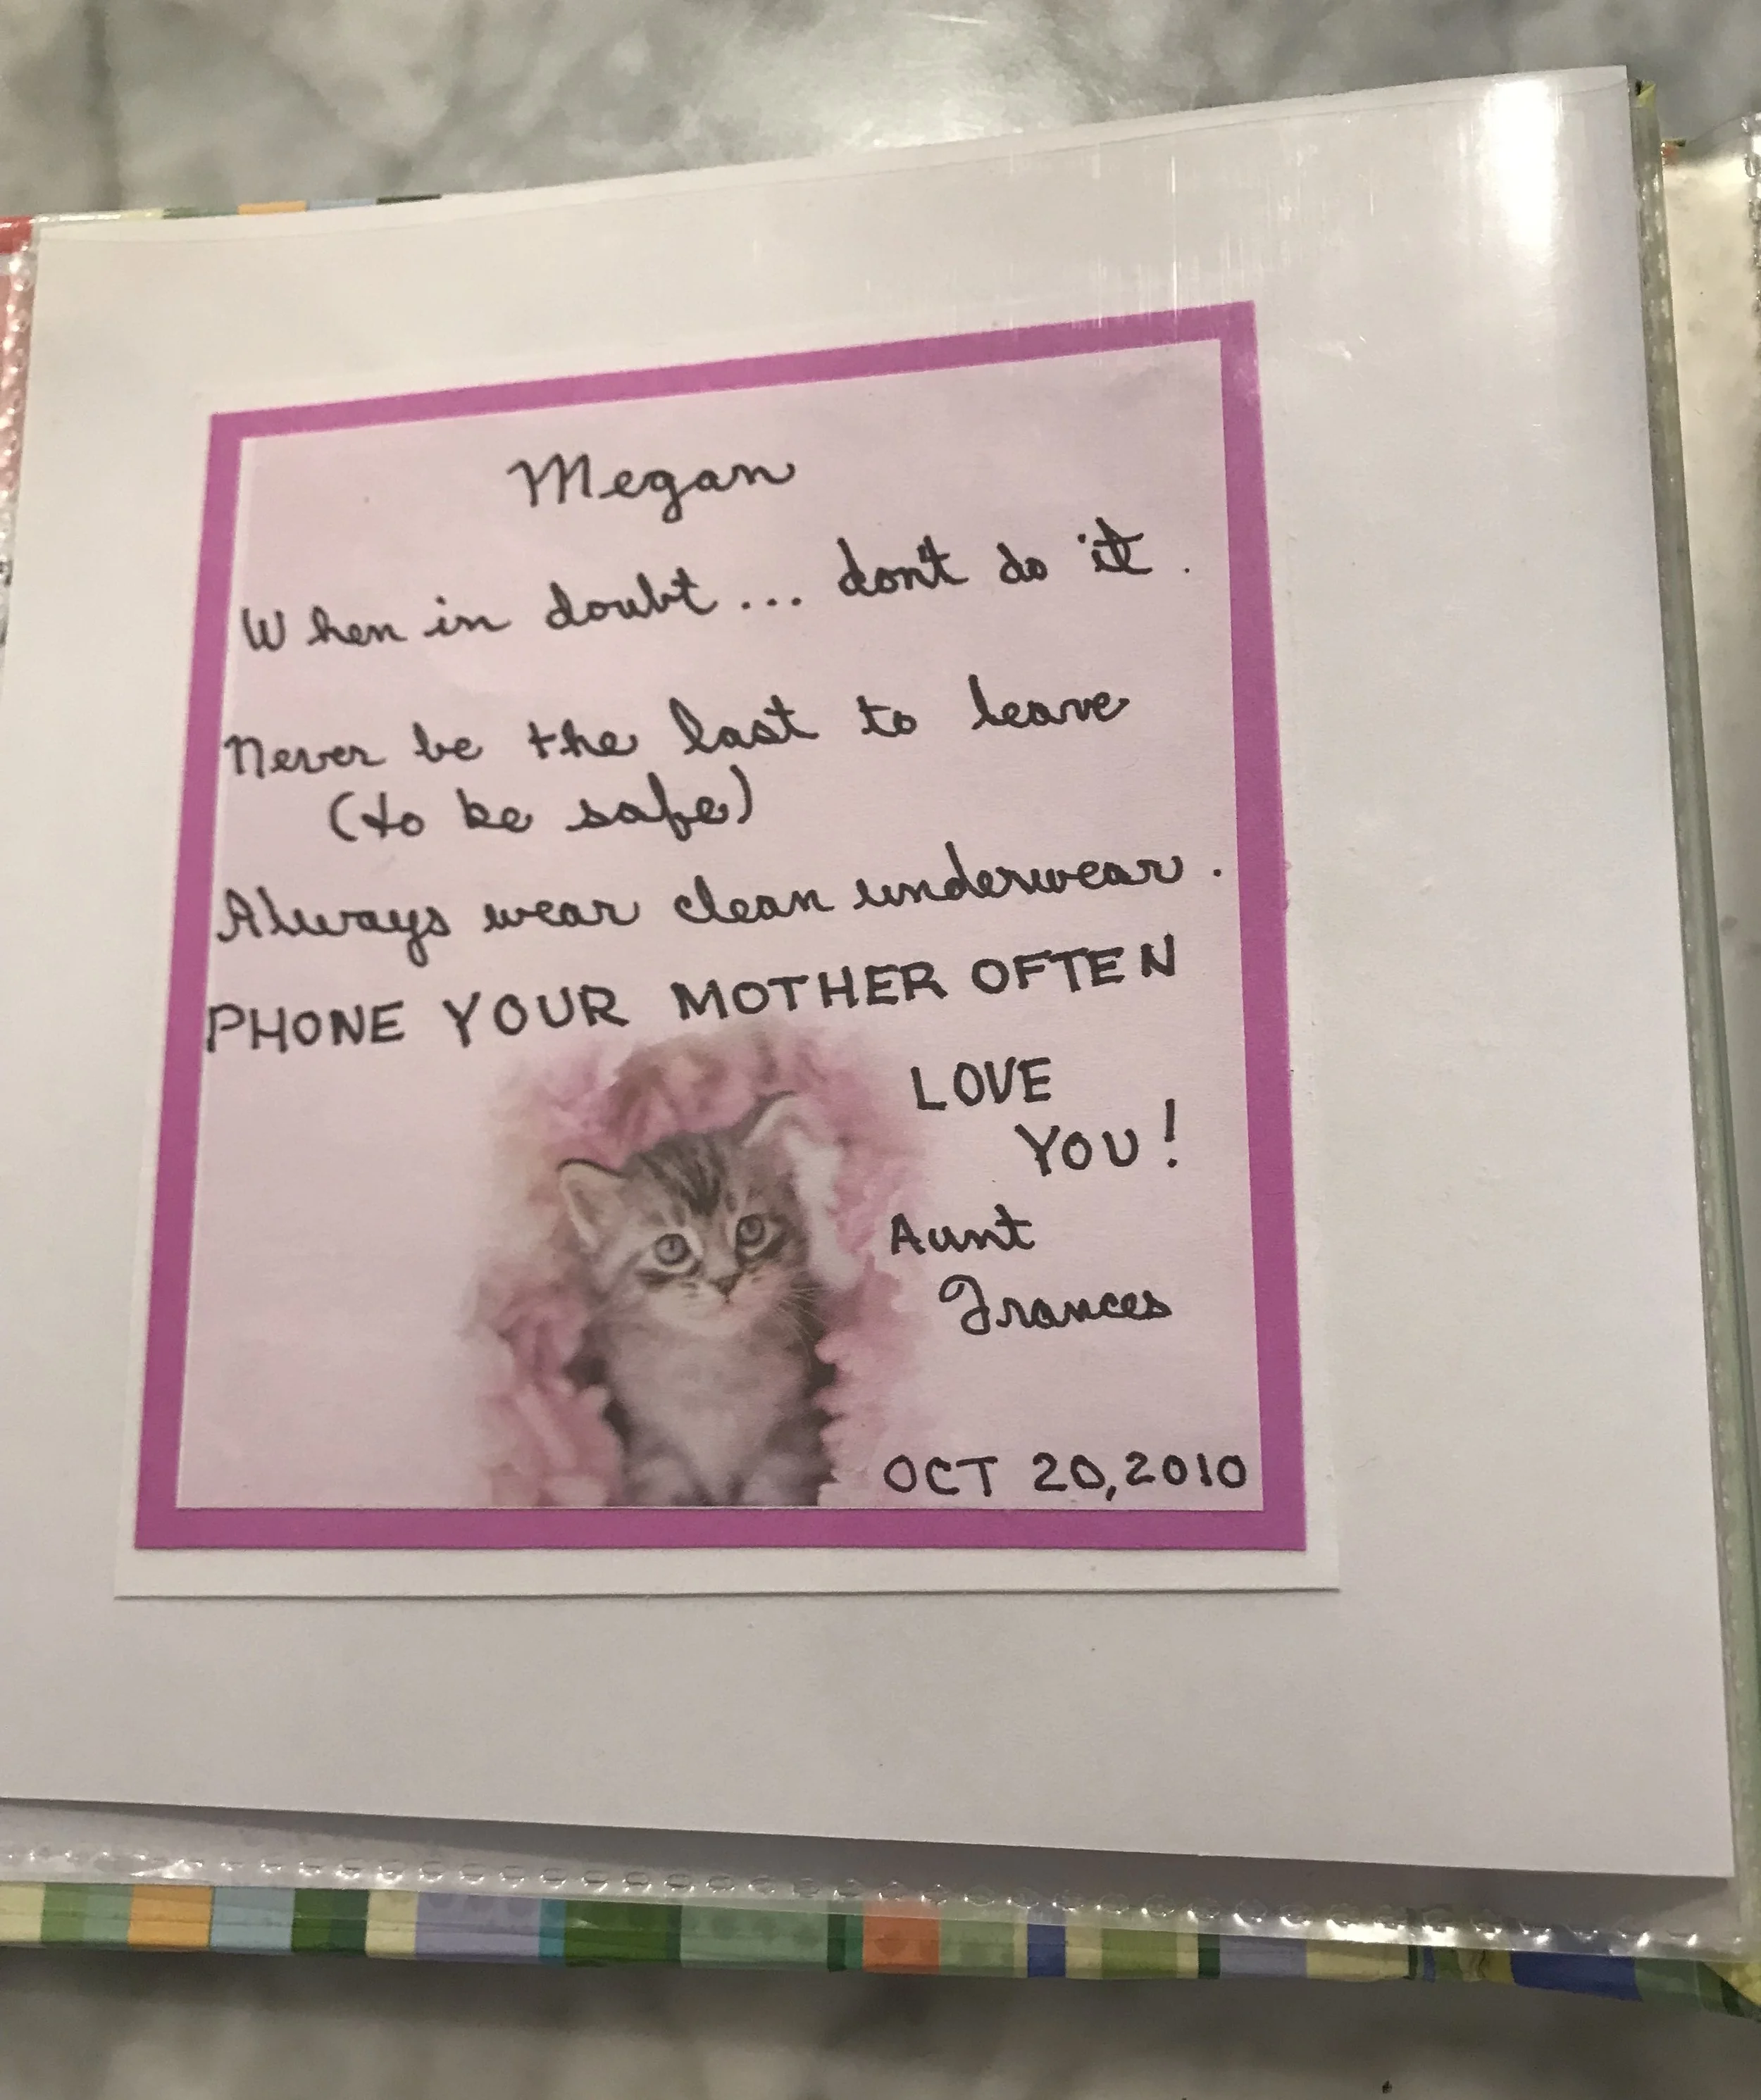 Megan
When in doubt... don't do it.
Never be the last to leave
(to be safe)
Always wear clean underwear.
PHONE YOUR MOTHER OFTEN
LOVE
YOU!
Aunt
Frances
OCT 20, 2010